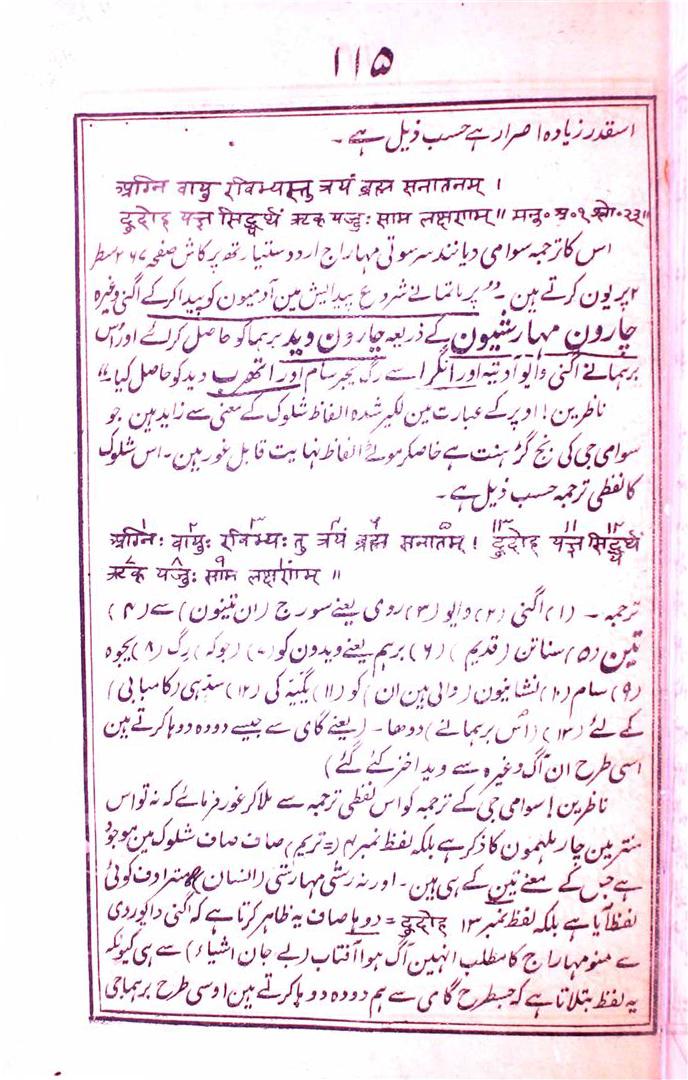 ۱۱۵
اسقدر زیادہ اصرار ہے حسب ذیل ہے ۔
अग्नि वायु रविभ्यस्तु त्रयं ब्रह्म सनातनम् ।
दुदोह यज्ञ सिद्ध्यर्थ ऋक यजुः साम लक्षणम् ॥ मनु॰ अ॰ १ श्लो॰ २३॥
اس کا ترجمہ سوامی دیانند سرسوتی مہاراج اردو ستیارتھ پرکاش صفحہ ۲۶۷ سطر
۲ پر یون کرتے ہین ۔ ” پرماتما نے شروع پیدایش مین آدمیون کو پیدا کر کے اگنی وغیرہ
چارون مہارشیون کے ذریعہ چارون وید برہما کو حاصل کرائے اور اُس
برہما نے اگنی وایو آدتیہ اور انگرا سے رگ یجر سام اور اتھرب وید کو حاصل کیا ۔“
ناظرین! اوپر کے عبارت مین لکیر شدہ الفاظ شلوک کے معنی سے زاید ہین جو
سوامی جی کی نج گڑہنت ہے خاصکر موٹے الفاظ نہایت قابل غور ہین ۔ اس شلوک
کا لفظی ترجمہ حسب ذیل ہے ۔
अग्निः वायुः रविभ्यः तु त्रयं ब्रह्म सनातम् । दुदोह यज्ञ सिद्ध्यर्थ
ऋक यजुः साम लक्षणम् ॥
ترجمہ ۔ (۱) اگنی (۲) وایو (۳) روی یعنے سورج (ان تینون) سے (۴)
تین (۵) سناتن (قدیم) (۶) برہم یعنے ویدون کو (۷) (جو کہ) رگ (۸) یجوہ
(۹) سام (۱۰) نشانیون (والی ہین ان) کو (۱۱) یگیّہ کی (۱۲) سدہی (کامیابی)
کے لئے (۱۳) (اُس برہما نے) دوھا ۔ (یعنے گای سے جیسے دودہ دوہا کرتے ہین
اسی طرح ان آگ وغیرہ سے وید اخذ کئے گئے)
ناظرین! سوامی جی کے ترجمہ کو اس لفظی ترجمہ سے ملا کر غور فرمائے کہ نہ تو اس
منتر مین چار ملہمون کا ذکر ہے بلکہ لفظ نمبر ۴ (= تریم) صاف صاف شلوک مین موجود
ہے جس کے معنے تین کے ہی ہین ۔ اور نہ رشی مہارشی (انسان) کا مترادف کوئی
لفظ آیا ہے بلکہ لفظ نمبر ۱۳ दुदोह = دوہا صاف یہ ظاہر کرتا ہے کہ اگنی وایو روی
سے منو مہاراج کا مطلب انہین آگ ہوا آفتاب (بے جان اشیاء) سے ہی کیونکہ
یہ لفظ بتلاتا ہے کہ جسطرح گای سے ہم دودہ دوہا کرتے ہین اوسی طرح برہما جی